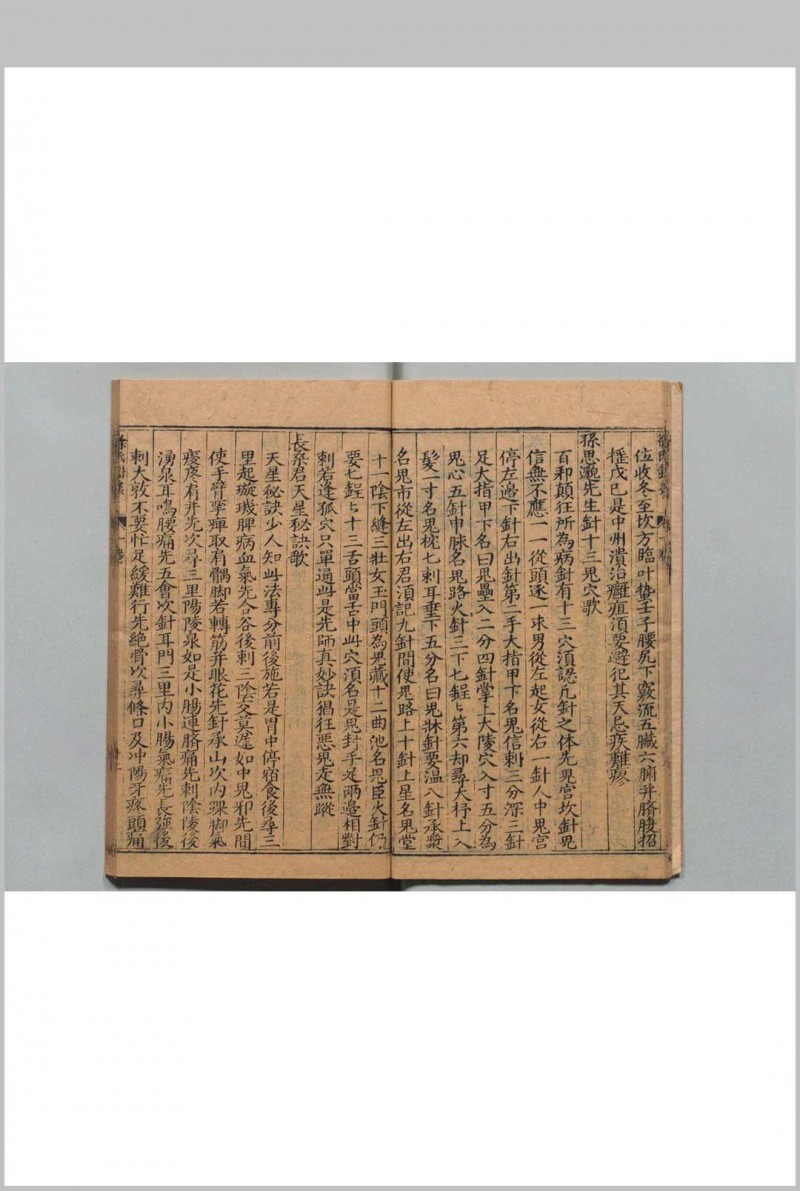 位收冬至坎方臨叶蟄壬子腰尻下竅流五臟六腑并臍腹招
搖戊己是中州潰治癰疽須要避犯其天忌疾難瘳
孫思邈先生針十三鬼穴歌
百邪顛狂所為病針有十三穴須認凡針之体先鬼宮次針鬼
信無不應一一從頭逐一求男從左起女從右一針人中鬼宮
停左邊下針右出針第二手大指甲下名鬼信刺三分深三針
足大指甲下名曰鬼壘入二分四針掌上大陵穴入寸五分為
鬼心五針申脉名鬼路火針三下七鋥〻第六却尋大杼上入
髮一寸名鬼枕七刺耳垂下五分名曰鬼牀針要溫八針承漿
名鬼市從左出右君須記九針間使鬼路上十針上星名鬼堂
十一陰下縫三壯女玉門頭為鬼藏十二曲池名鬼臣火針仍
要七鋥〻十三舌頭當舌中此穴須名是鬼封手足兩邊相對
刺若逢孤穴只單通此是先師真妙訣猖狂惡鬼走無蹤
長桑君天星秘訣歌
天星秘訣少人知此法專分前後施若是胃中停宿食後尋三
里起璇璣脾病血氣先合谷後刺三陰交莫遲如中鬼邪先間
使手臂攣痺取肩髃脚若轉筋并眼花先針承山次內踝脚氣
痠疼肩井先次尋三里陽陵泉如是小腸連臍痛先刺陰陵後
湧泉耳鳴腰痛先五會次針耳門三里內小腸氣痛先長強後
刺大敦不要忙足緩難行先絶骨次尋條口及冲陽牙疼頭痛